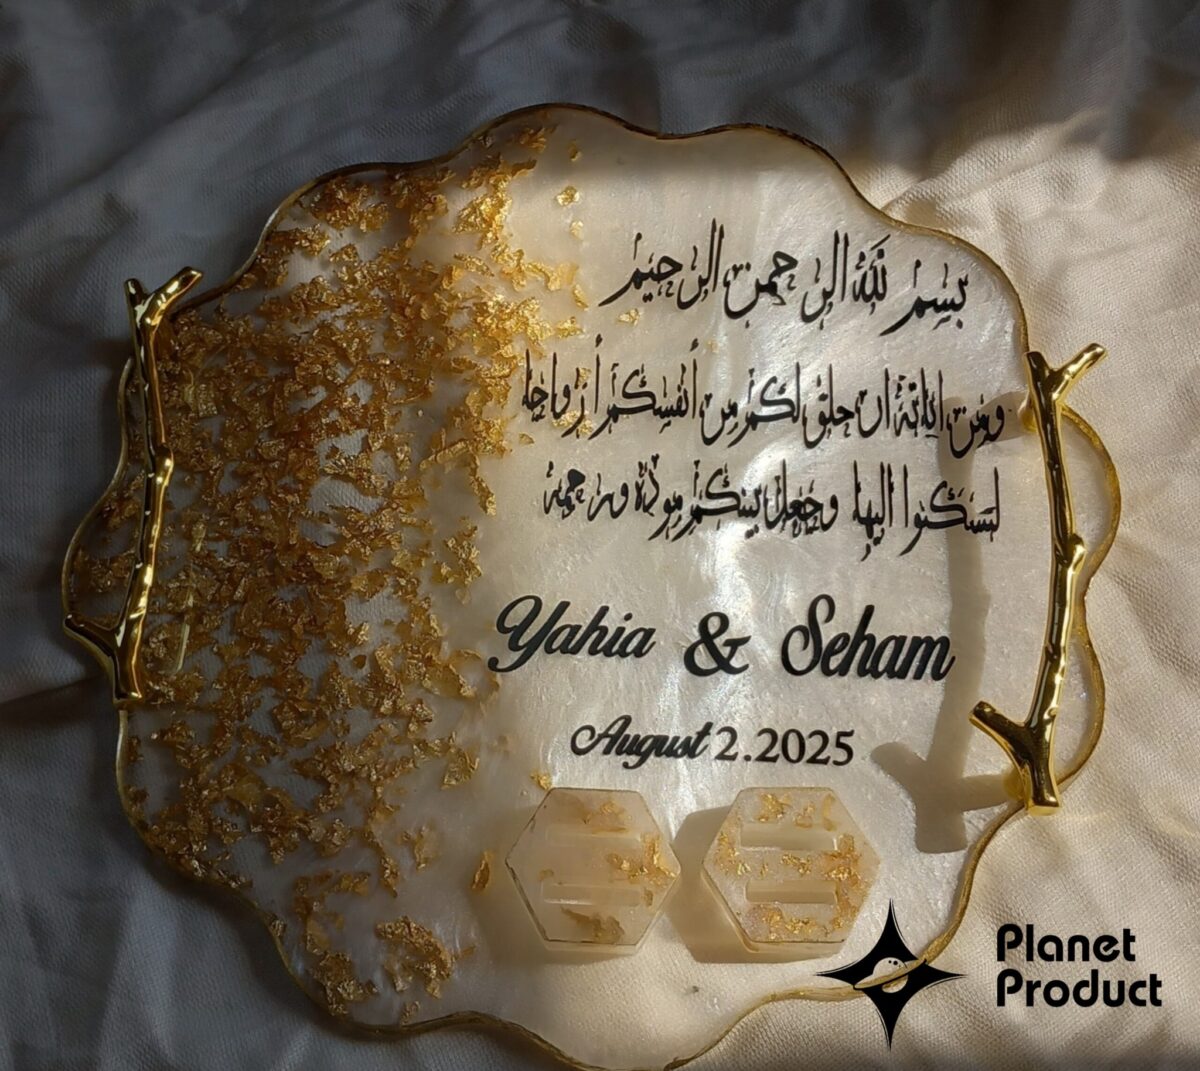 بسم الله الرحمن الرحيم
ومن اياته ان خلق لكم من أنفسكم أزواجا
لتسكنوا اليها وجعل بينكم مودة ورحمة
Yahia & Seham
August 2.2025
Planet
Product